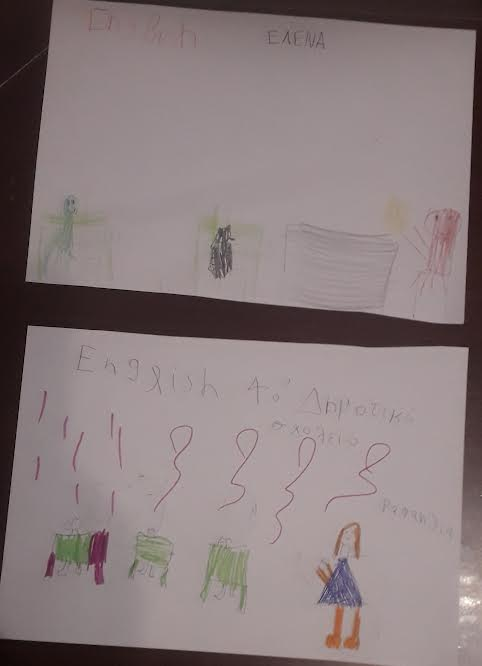 English ΕΛΕΝΑ
English 4ο Δημοτικό
σχολείο